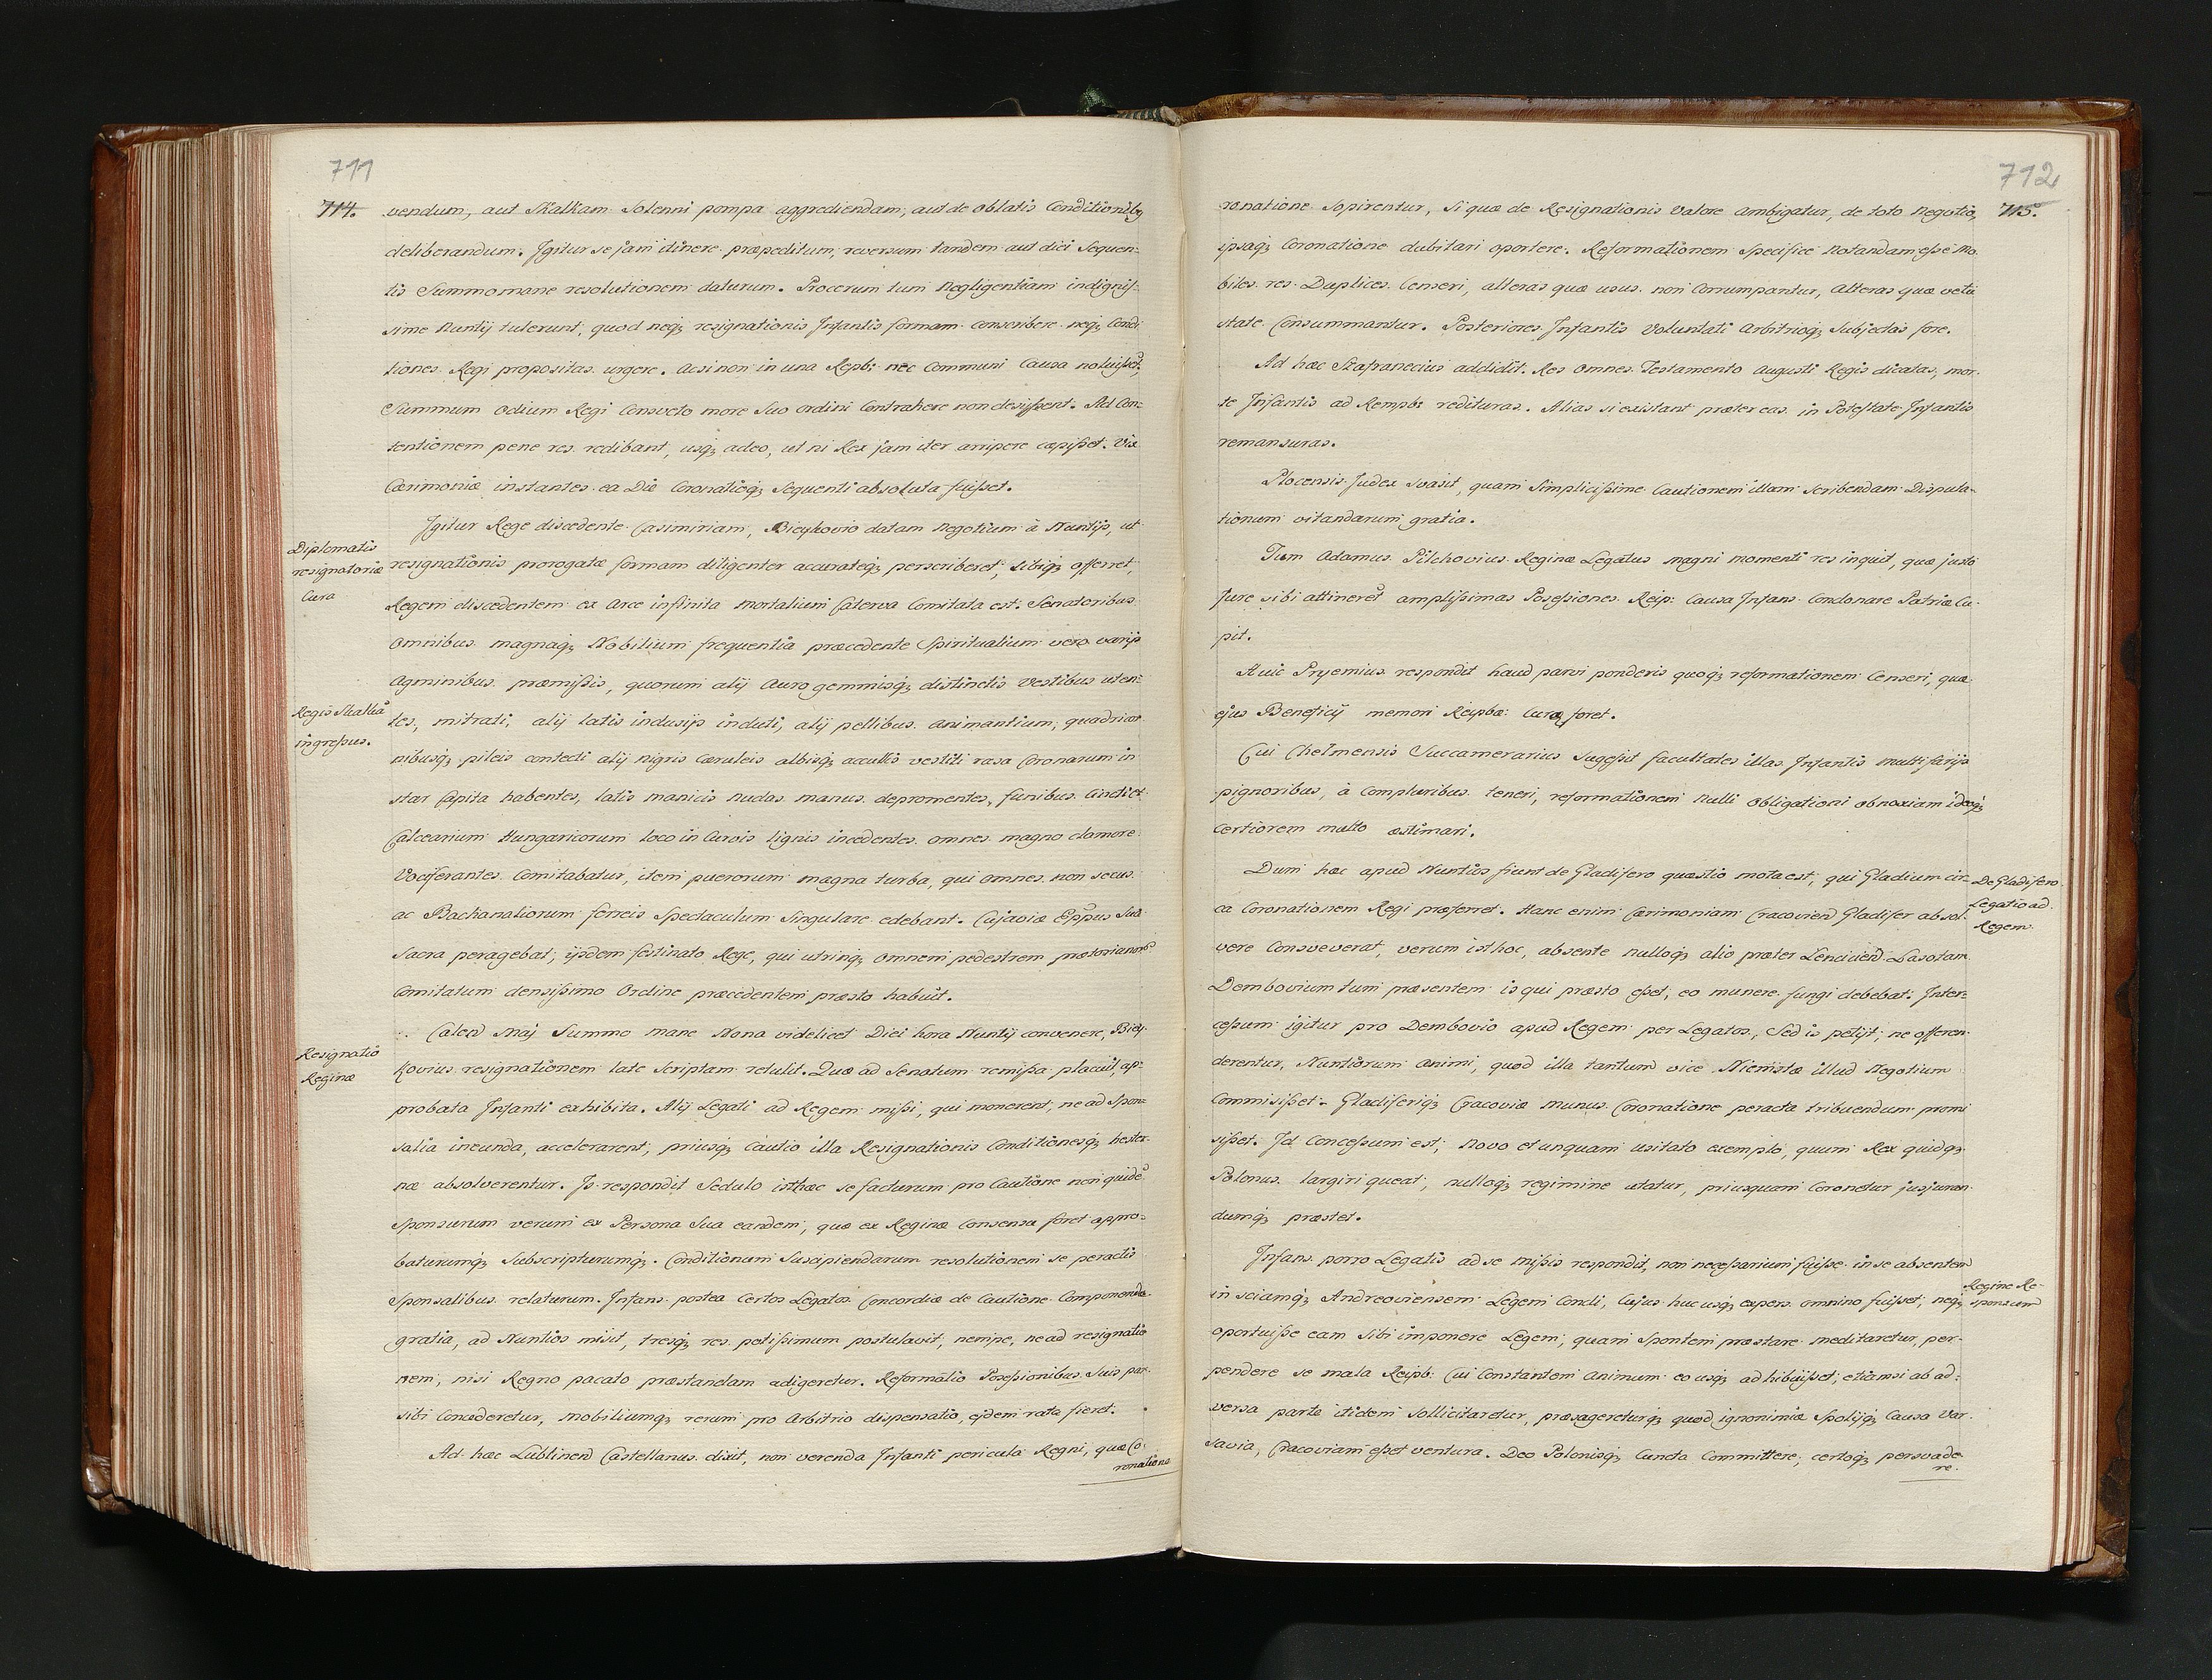 711
714.
vendum, aut Skalkam Solenni pompa aggrediendam, aut de oblatis Conditionibq
deliberandum. Igitur se jam itinere præpeditum, reversum tandem aut diei Sequen-
tis Summo mane resolutionem daturum. Procerum tum Negligentiam indignis-
sime Nuntij tulerunt, quod neq; resignationis Infantis formam conscribere neq; Condi
tiones Regi propositas urgere. Acsi non in una Repb: nec Communi Causa noluisset,
Summum odium Regi Consveto more Suo ordini Contrahere non desijssent. Ad Con-
tentionem pene res redibant, usq; adeo, ut ni Rex jam iter arripere cæpisset. Vix
Cærimoniæ instantes ea Die Coronatioq; Sequenti absoluta fuisset.
Igitur Rege discedente Casimiriam, Bieykovio datam Negotium à Nuntijs, ut
Diplomatis
resignatoriæ
Cura
resignationis prorogatæ formam diligenter accurateq; perscriberet, sibiq; offerret,
Regem discedentem ex Arce infinita mortalium Caterva Comitata est. Senatoribus
Omnibus magnaq; Nobilium frequentia præcedente Spiritualium vero varijs
Agminibus præmissis, quorum alij Auro gemmisq; distinctis Vestibus uten-
Regis Skalkã
ingressus.
tes, mitrati, alij latis indusijs induti, alij pellibus Animantium, quadrior
nibusq; pileis contecti alij nigris Cæruleis albisq; accullis vestiti rasa Coronarum in
star Capita habentes, latis manicis nudas manus depromentes, funibus Cincti et
Calcearium Hungaricorum loco in Curvis lignis incedentes omnes magno clamore
Vociferantes Comitabatur, item puerorum magna turba, qui omnes non secus
ac Bachanaliorum ferreis Spectaculum Singulare edebant. Cujaviæ Eppus Sua
Sacra peragebat, ijsdem festinato Rege, qui utrinq; omnem pedestrem prætorianorũ
Comitatum densissimo Ordine præcedentem præsto habuit.
Calend Maj Summo mane Nona videlicet Diei hora Nuntij convenere, Biey-
Resignatio
Reginæ
kovius resignationem late Scriptam retulit. Quæ ad Senatum remissa placuit, ap-
probata Infanti exhibita. Alij Legati ad Regem missi, qui monerent, ne ad Spon-
salia ineunda, accelerarent, priusq; Cautio illa Resignationis Conditionesq; hester-
næ absolverentur. Is respondit Sedulo isthæc se facturum pro Cautione non quidẽ
Sponsurum verum ex Persona Sua eandem, quæ ex Reginæ Consensu foret appro-
baturumq; Subscripturumq;. Conditionum Suscipiendarum resolutionem se peractis
Sponsalibus relaturum. Infans postea Certos Legatos Concordiæ de Cautione Componendæ
gratia, ad Nuntios misit, tresq; res potissimum postulavit, nempe, ne ad resignatio
nem, nisi Regno pacato præstandam adigeretur. Reformatio Possessionibus Suis par-
sibi Concederetur, mobiliumq; rerum pro Arbitrio dispensatio, ejdem rata fieret.
Ad hæc Lublinen Castellanus dixit, non verenda Infanti pericula Regni, quæ Co-
ronatione
712
715.
ronatione Sopirentur, Si quæ de Resignationis Valore Ambigatur, de toto Negotio,
ipsaq; Coronatione dubitari oportere. Reformationem Specifice Notandam esse Mo
biles res Duplices Censeri, alteras quæ usus non Corrumpantur, Alteras quæ vetu
state Consummantur. Posteriores Infantis Voluntati Arbitrioq; Subjectas fore.
Ad hæc Szafranecius addidit. Res omnes Testamento Augusti Regis dicatas, mor-
te Infantis ad Rempb: redituras. Alias si existant præter eas in Potestate Infantis
remansuras.
Plocensis Judex Svasit, quam Simplicissime Cautionem illam Scribendam Disputa-
tionum vitandarum gratia.
Tum Adamus Pilchovius Reginæ Legatus magni momenti res inquit, quæ justo
Jure sibi attineret amplissimas Possessiones Reip: Causa Infans Condonare Patriæ Cu-
pit.
Huic Pryemius respondit haud parvi ponderis quoq; reformationem Censeri, quæ
ejus Beneficij memori Reipbæ: Curæ foret.
Cui Chelmensis Succamerarius Sugessit facultates illas Infantis multifarijs
pignoribus, à Compluribus teneri, reformationem Nulli Obligationi obnoxiam ideoq;
certiorem multo æstimari.
Dum hæc apud Nuntios fiunt de Gladifero quæstio mota est, qui Gladium cir-
De Gladifero
Legatio ad
Regem.
ca Coronationem Regi præferret. Hanc enim Cærimoniam Cracovien Gladifer absol-
vere Consveverat, verum isthoc, absente nulloq; alio præter Lencicien Lasotam
Dembovium tum præsentem is qui præsto esset, eo munere fungi debebat. Inter-
cessum igitur pro Dembovio apud Regem per Legatos, Sed is petijt, ne offeren-
derentur, Nuntiorum Animi, quod illa tantum vice Niemstæ illud Negotium
Commisisset. Gladiferiq; Cracoviæ munus Coronatione peracta tribuendum promi
sisset. Id Concessum est, Novo et unquam usitato exemplo, quum Rex quidq;
Polonus largiri queat, nulloq; regimine utatur, priusquam Coronetur jusjuran-
dumq; præstet.
Infans porro Legatis ad se missis respondit, non necessarium fuisse in se absentem
Regine Re-
sponsum
in sciamq; Andreoviensem Legem Condi, Cujus huc usq; expers omnino fuisset, neq;
oportuisse eam Sibi imponere Legem, quam Spontem præstare meditaretur, per-
pendere se mala Reipb: Cui Constantem Animum eo usq; adhibuisset, etiamsi ab ad-
versa parte itidem Sollicitaretur, præsagereturq; quod ignonimiæ Spolijq; Causa Var-
savia, Cracoviam esset ventura. Deo Polonisq; Cuncta Committere, certoq; persvade
re.